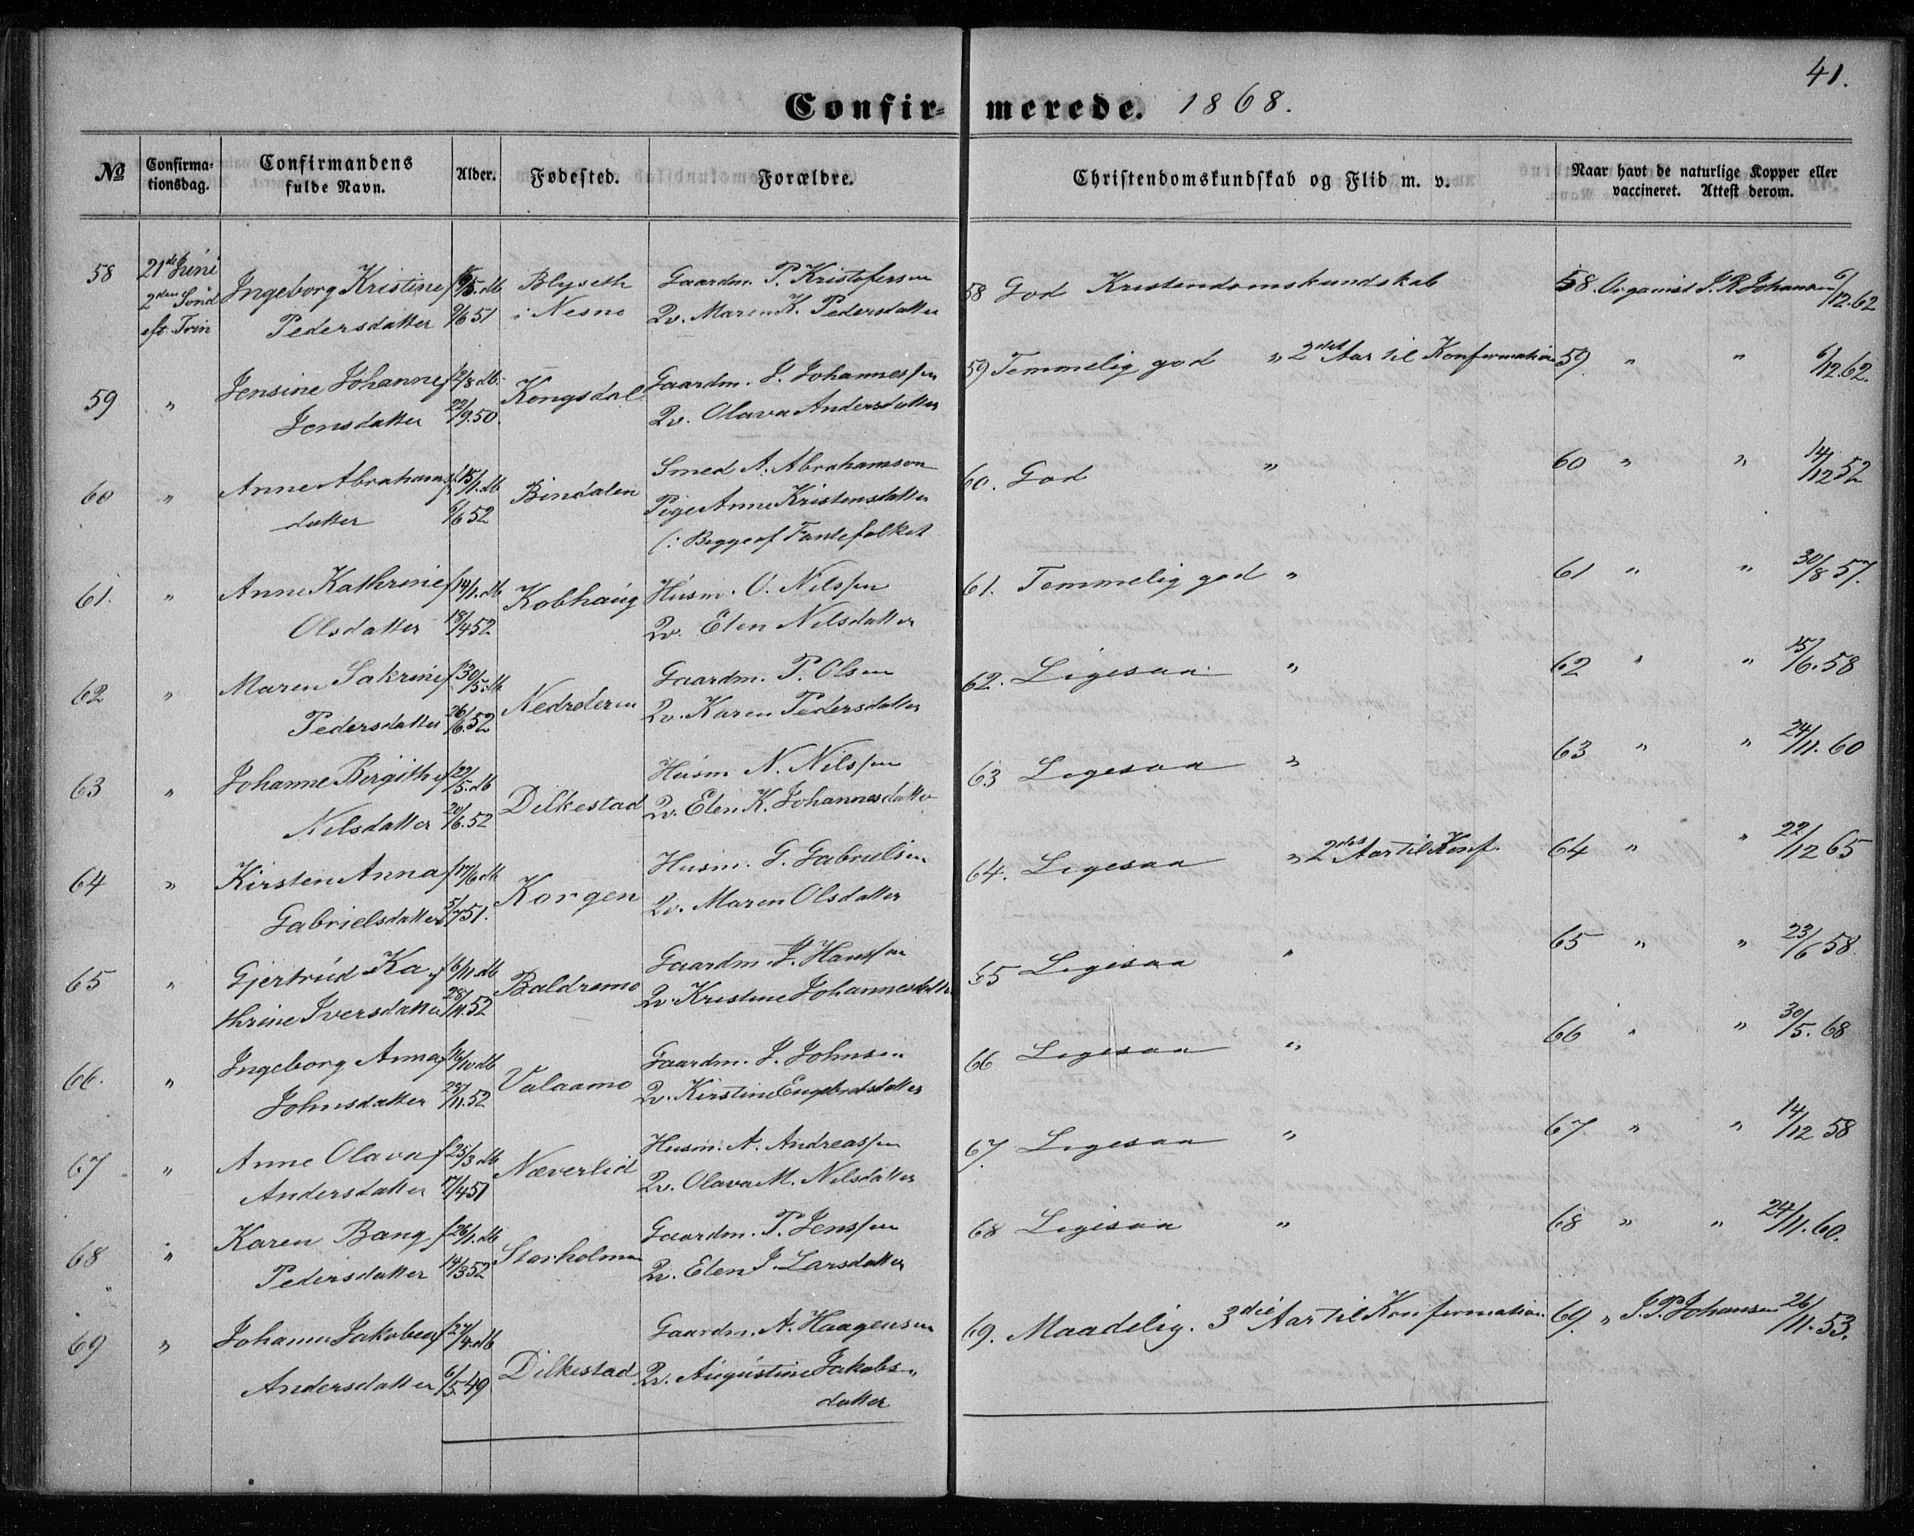 41.
Confirmerede. 1868.
No
Confirmationsdag.
Confirmandens fulde Navn.
Alder.
Fødested.
Forældre.
Christendomskundskab og Flid m. v.
Naar havt de naturlige Kopper eller vaccineret. Attest derom.
58 21de Juni Ingeborg Kristine Blyseth Gaardm. P. Kristofersen 58 God Kristendomskundskab 58. Organist J. R. Johansen 6/12.62
2den Sønd eft. Trin Pedersdatter 51 i Nesne Qv. Maren K. Pedersdatter
59 " Jensine Johanne f 8.db Kongsdal Gaardm. J. Johannessen 59 Temmelig god " 2det Aar til Konfirmation 59. " " 6/12.62.
Jensdatter 22/9.50. Qv. Olava Andersdatter
60 " Anne Abrahams f 15/1.db Bindalen Smed A. Abrahamson 60. God " 60 " " 14/12 52
datter 6/6 52 Pige Anne Kristensdatter
(: Begge af Fantefolket
61. " Anne Kathrine f 14/1.db Kobhaug Husm. O. Nilssen 61. Temmelig god " 61 " " 30/8 57.
Olsdatter 18/4 52 Qv. Elen Nilsdatter
62 " Maren Sakrine f 30/5.db Nedreleren Gaardm. P. Olsen 62. Ligesaa " 62 " " 15/6.58
Pedersdatter 26/6.52 Qv. Karen Pedersdatter
63 " Johanne Bergithe f 22/5.db Dilkestad Husm N. Nilssen 63 Ligesaa " 63 " " 24/11.60
Nilsdatter 20/6.52 Qv. Elen K. Johannesdatter
64 " Kirsten Anna f 17/6 db Korgen Husm. G. Gabrielsen 64. Ligesaa " 2det Aar til Konf. 64 " " 22/12 65
Gabrielsdatter 5/7 51. Qv. Maren Olsdatter
65 " Gjertrud Ka f 6/11.db Baldremo Gaardm. J. Hanssen 65 Ligesaa " 65 " " 23/6 58.
thrine Iversdatter 28/11.52 Qv Kristine Johannesdatter
66. " Ingeborg Anna f 10 db Valaamo Gaardm. J. Johnsen 66 Ligesaa " 66 " " 30/5. 68
Johnsdatter 28/11.52 Qv. Kirstine Engebretsdatter
67 " Anne Olava f 25/3 db Næverlid Husm. A. Andreassen 67. Ligesaa " 67 " " 14/12 58
Andersdatter 17/4 51 Qv. Olava M. Nilsdatter
68 " Karen Bang f 26/1.db Storholmen Gaardm. P. Jenssen 68 Ligesaa " 68 " " 24/11.60.
Pedersdatter 14/3 52 Qv. Elen J. Larsdatter
69 " Johanna Jakobea f 27/4.db Dilkestad Gaardm. A. Haagensen 69. Maadelig. 3die Aar til Konfirmation. 69. " J. P. Johansen 26/11.53.
Andersdatter 6/5 49 Qv. Augustine Jakobsdatter